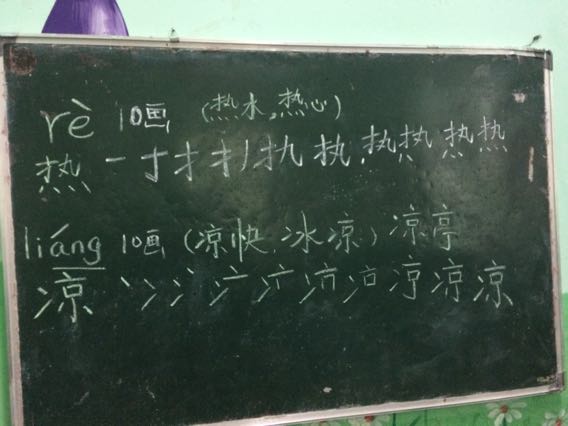 rè 10画 (热水,热心)
热 一 十 扌 扌丿 执 执 执 热 热 热
liáng 10画 (凉快,冰凉) 凉亭
凉 丶 冫 冫 冫 冫 凉